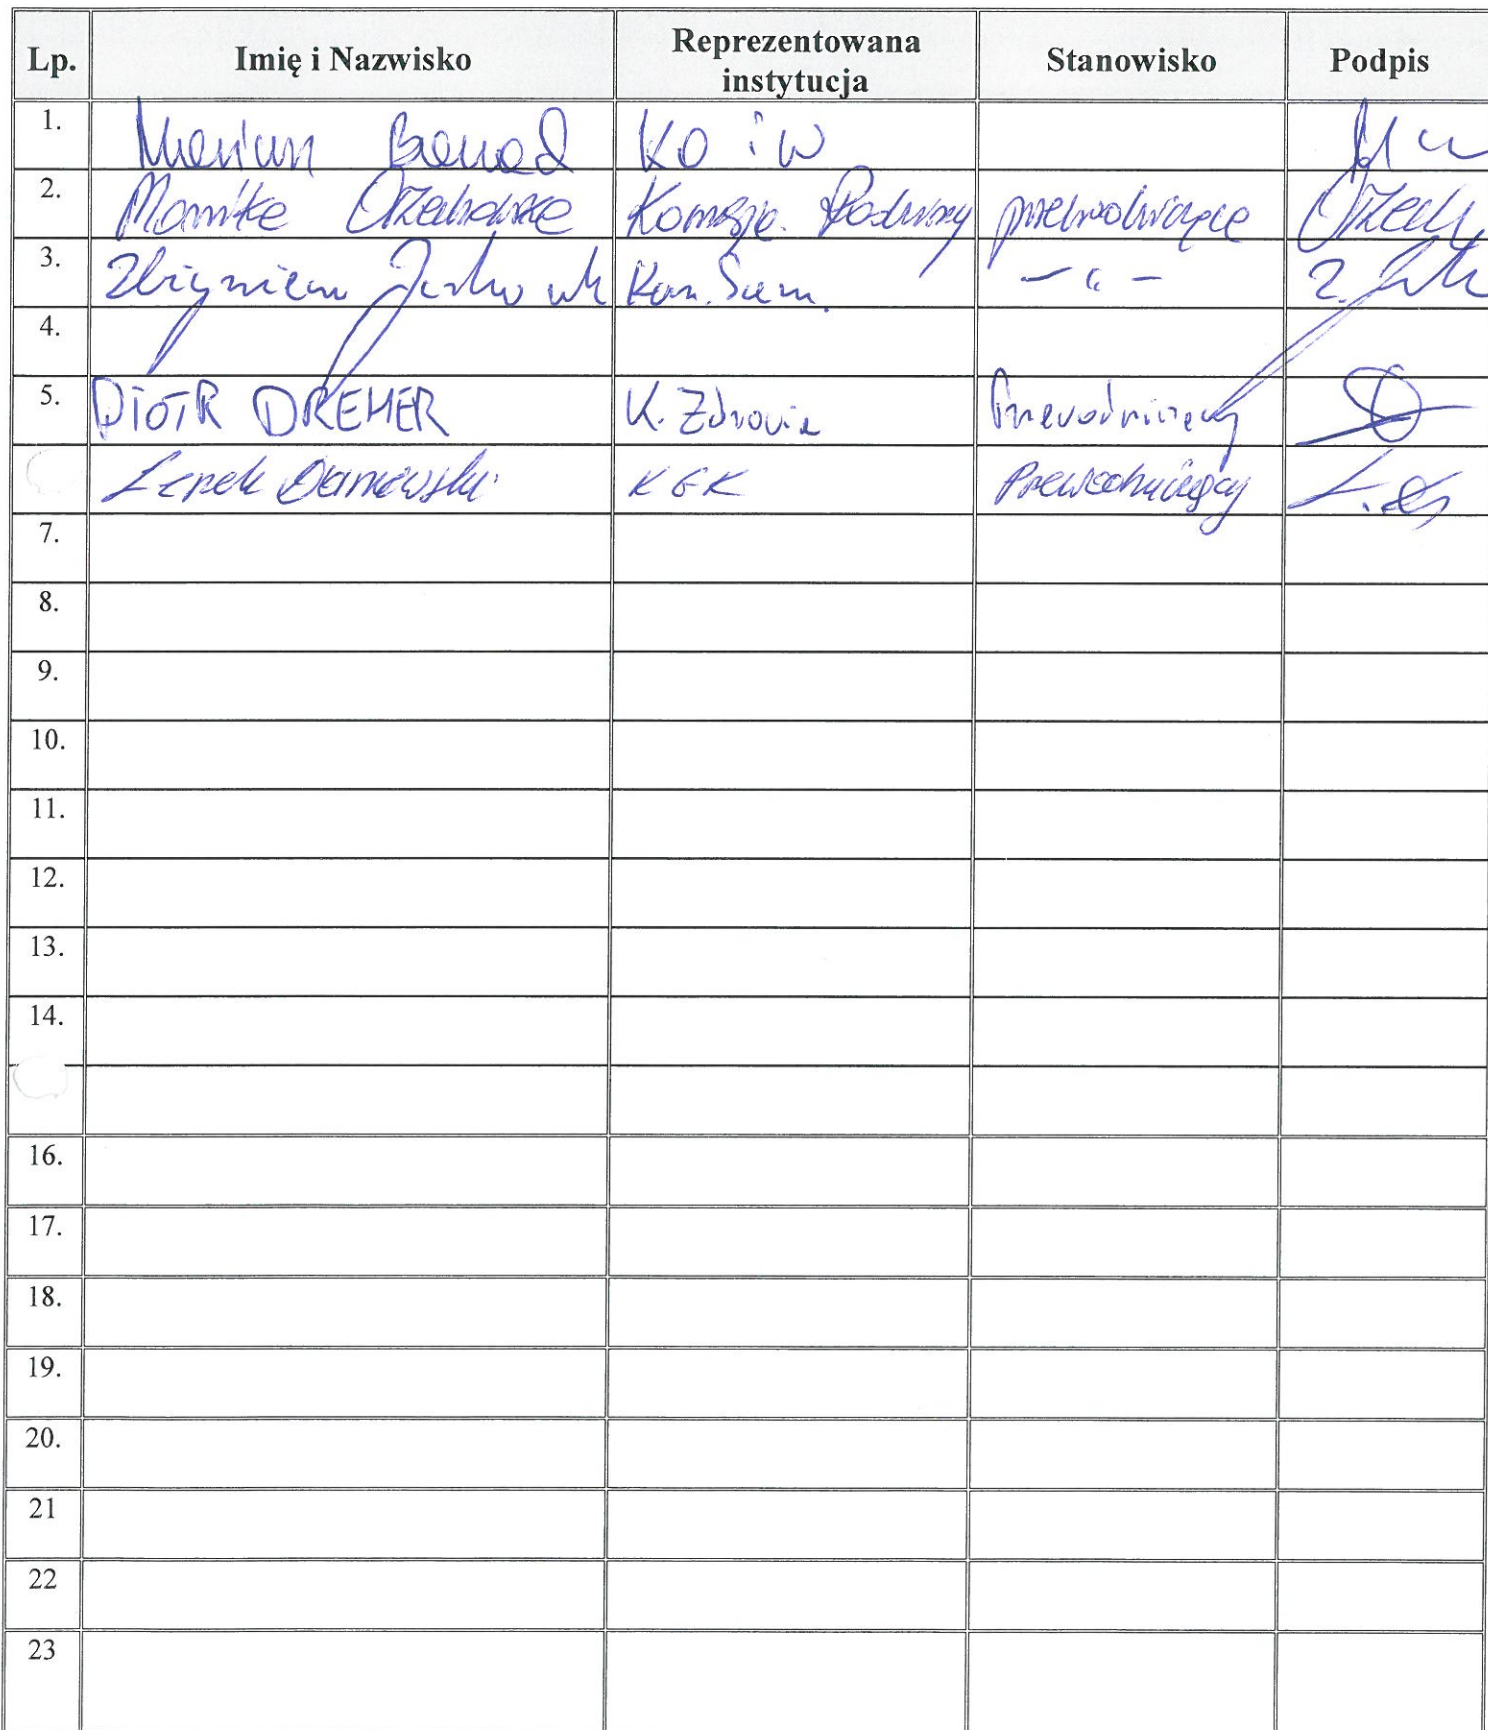 Lp. Imię i Nazwisko Reprezentowana instytucja Stanowisko Podpis
1. Marian Banad KO i W
2. Monika Orzechowska Komisja Rodziny przewodnicząca Orzech
3. Zbigniew Kom. Sam. - " -
4.
5. PIOTR DREHER K. Zdrowia Przewodniczący
Leszek Darnowski KGK Przewodniczący
7.
8.
9.
10.
11.
12.
13.
14.
16.
17.
18.
19.
20.
21
22
23